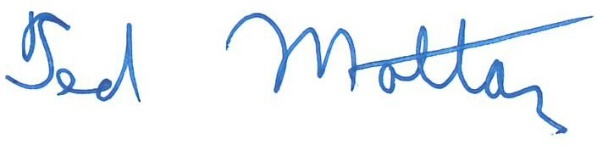 Ted Mottaz